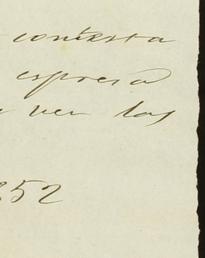 contesta
espresa
ver las
852